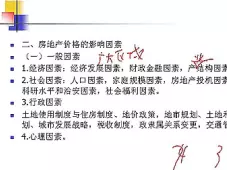 二、房地产价格的影响因素
（一）一般因素
1.经济因素：经济发展因素，财政金融因素，产业结构因素
2.社会因素：人口因素，家庭规模因素，房地产投机因素
科研水平和治安因素，社会福利因素。
3.行政因素
土地使用制度与住房制度、地价政策，城市规划、土
划、城市发展战略，税收制度，政隶属关系变更，交通管
4.心理因素。